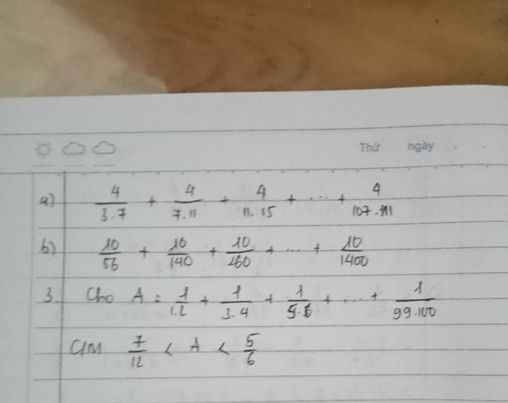 Thứ ngày
a) 4/3.7 + 4/7.11 + 4/11.15 + ... + 4/107.111
b) 10/56 + 10/140 + 10/260 + ... + 10/1400
3. Cho A = 1/1.2 + 1/3.4 + 1/5.6 + ... + 1/99.100
CM 7/12 < A < 5/6